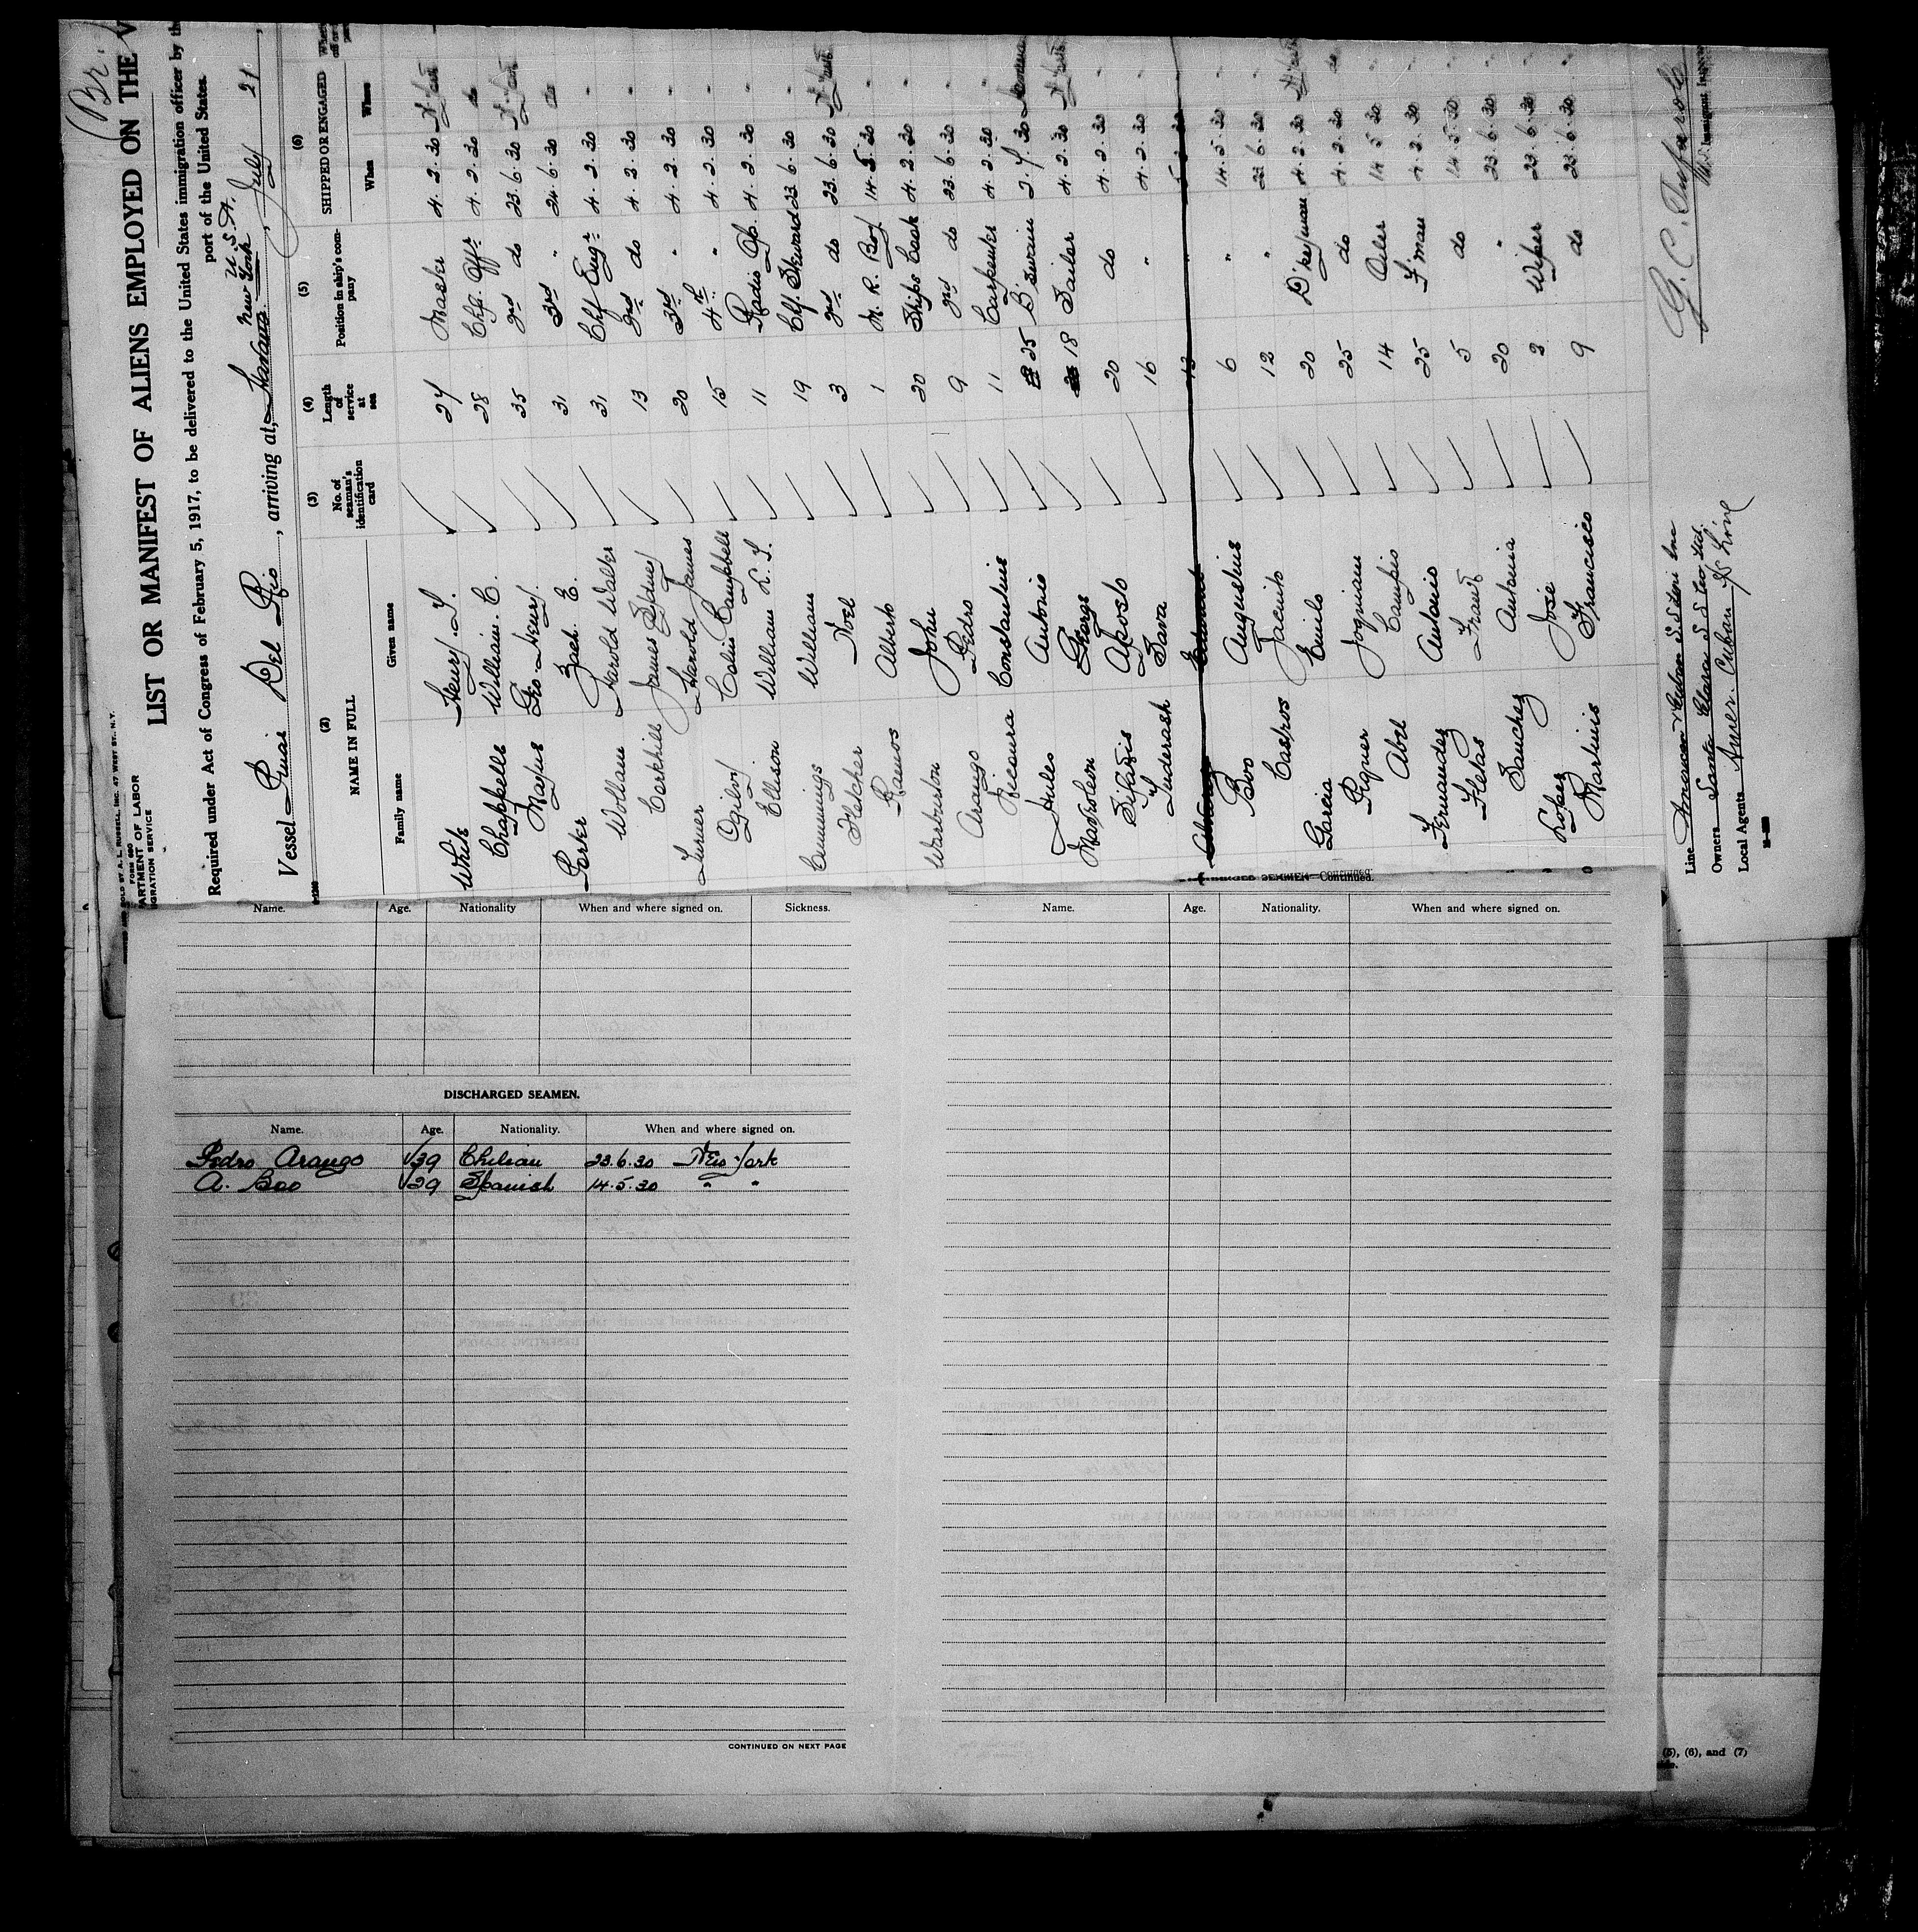 (Br.)
SOLD BY A. L. RUSSELL, INC. 47 WEST ST., N.Y.
FORM 680
ARTMENT OF LABOR
IGRATION SERVICE
LIST OR MANIFEST OF ALIENS EMPLOYED ON THE V
Required under Act of Congress of February 5, 1917, to be delivered to the United States immigration officer by th
port of the United States.
New York U.S.A.
Vessel Pinar Del Rio, arriving at, Havana, July 21,
(2) (3) (4) (5) (6)
NAME IN FULL No. of seaman's identification card Length of service at sea Position in ship's company SHIPPED OR ENGAGED
Family name Given name When Where
White Henry. T. 27 Master 4.2.30 N. York
Chappelle William. C. 28 Chf. Offr 4.2.30 do
Magus Geo Henry. 35 2nd do 23.6.30 N. York
Parker Zach. E. 31 3rd " 24.6.30 do
Wollam Harold Walter 31 Chf Engr 4.2.30 "
Corkhill James Sidney 13 2nd do 4.2.30 "
Turner Harold James 20 3rd " 4.2.30 "
Ogilvy Colin Campbell 15 4th " 4.2.30 "
Ellison William L. T. 11 Radio Op. 4.2.30 "
Cummings William 19 Chf. Steward 23.6.30 "
Fletcher Noel 3 2nd do 23.6.30 N. York
Ramos Alberto 1 M. R. Boy 14.5.30 "
Warburton John 20 Ships Cook 4.2.30 "
Arango Pedro 9 2nd do 23.6.30 "
Constantine 11 Carpenter 4.2.30 "
Antonio 25 B'swain 2.7.30
George 18 Sailor 4.2.30 N. York
Aposto 20 do 4.2.30 "
Sava 16 " 4.2.30 "
13 "
Boo Augustine 6 " 14.5.30 "
Castros Jacinto 12 " 23.6.30 "
Garcia Emilo 20 D'keyman 4.2.30 N. York
Piquer Joquiam 25 do 4.2.30 do
Abol 14 Oiler 14.5.30 "
Fernandez Antonio 25 F'man 4.2.30 "
Fletas 5 do 14.5.30 "
Sanchez Antonia 20 " 23.6.30 "
Lopez Jose 2 Wiper 23.6.30 "
Martinis Francisco 9 do 23.6.30 "
Line
Owners Santa Clara S S Co, Ltd.
Local Agents Amer. Cuban SS Line
G. C. Tufarolo
Immigrant Inspector
Name. Age. Nationality When and where signed on. Sickness.
DISCHARGED SEAMEN.
Name. Age. Nationality. When and where signed on.
Pedro Arango 39 Chilean 23.6.30 New York
A. Boo 29 Spanish 14.5.30 " "
CONTINUED ON NEXT PAGE
SEAMEN—Continued.
Name. Age. Nationality. When and where signed on.
(5), (6), and (7)